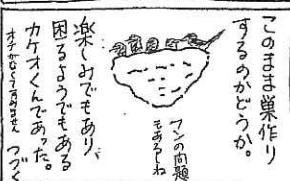 このまま巣作り
するのかどうか。
フンの問題
もあるしね
楽しみでもあり、
困るようでもある
カケオくんであった。
オチがなくてすみません つづく